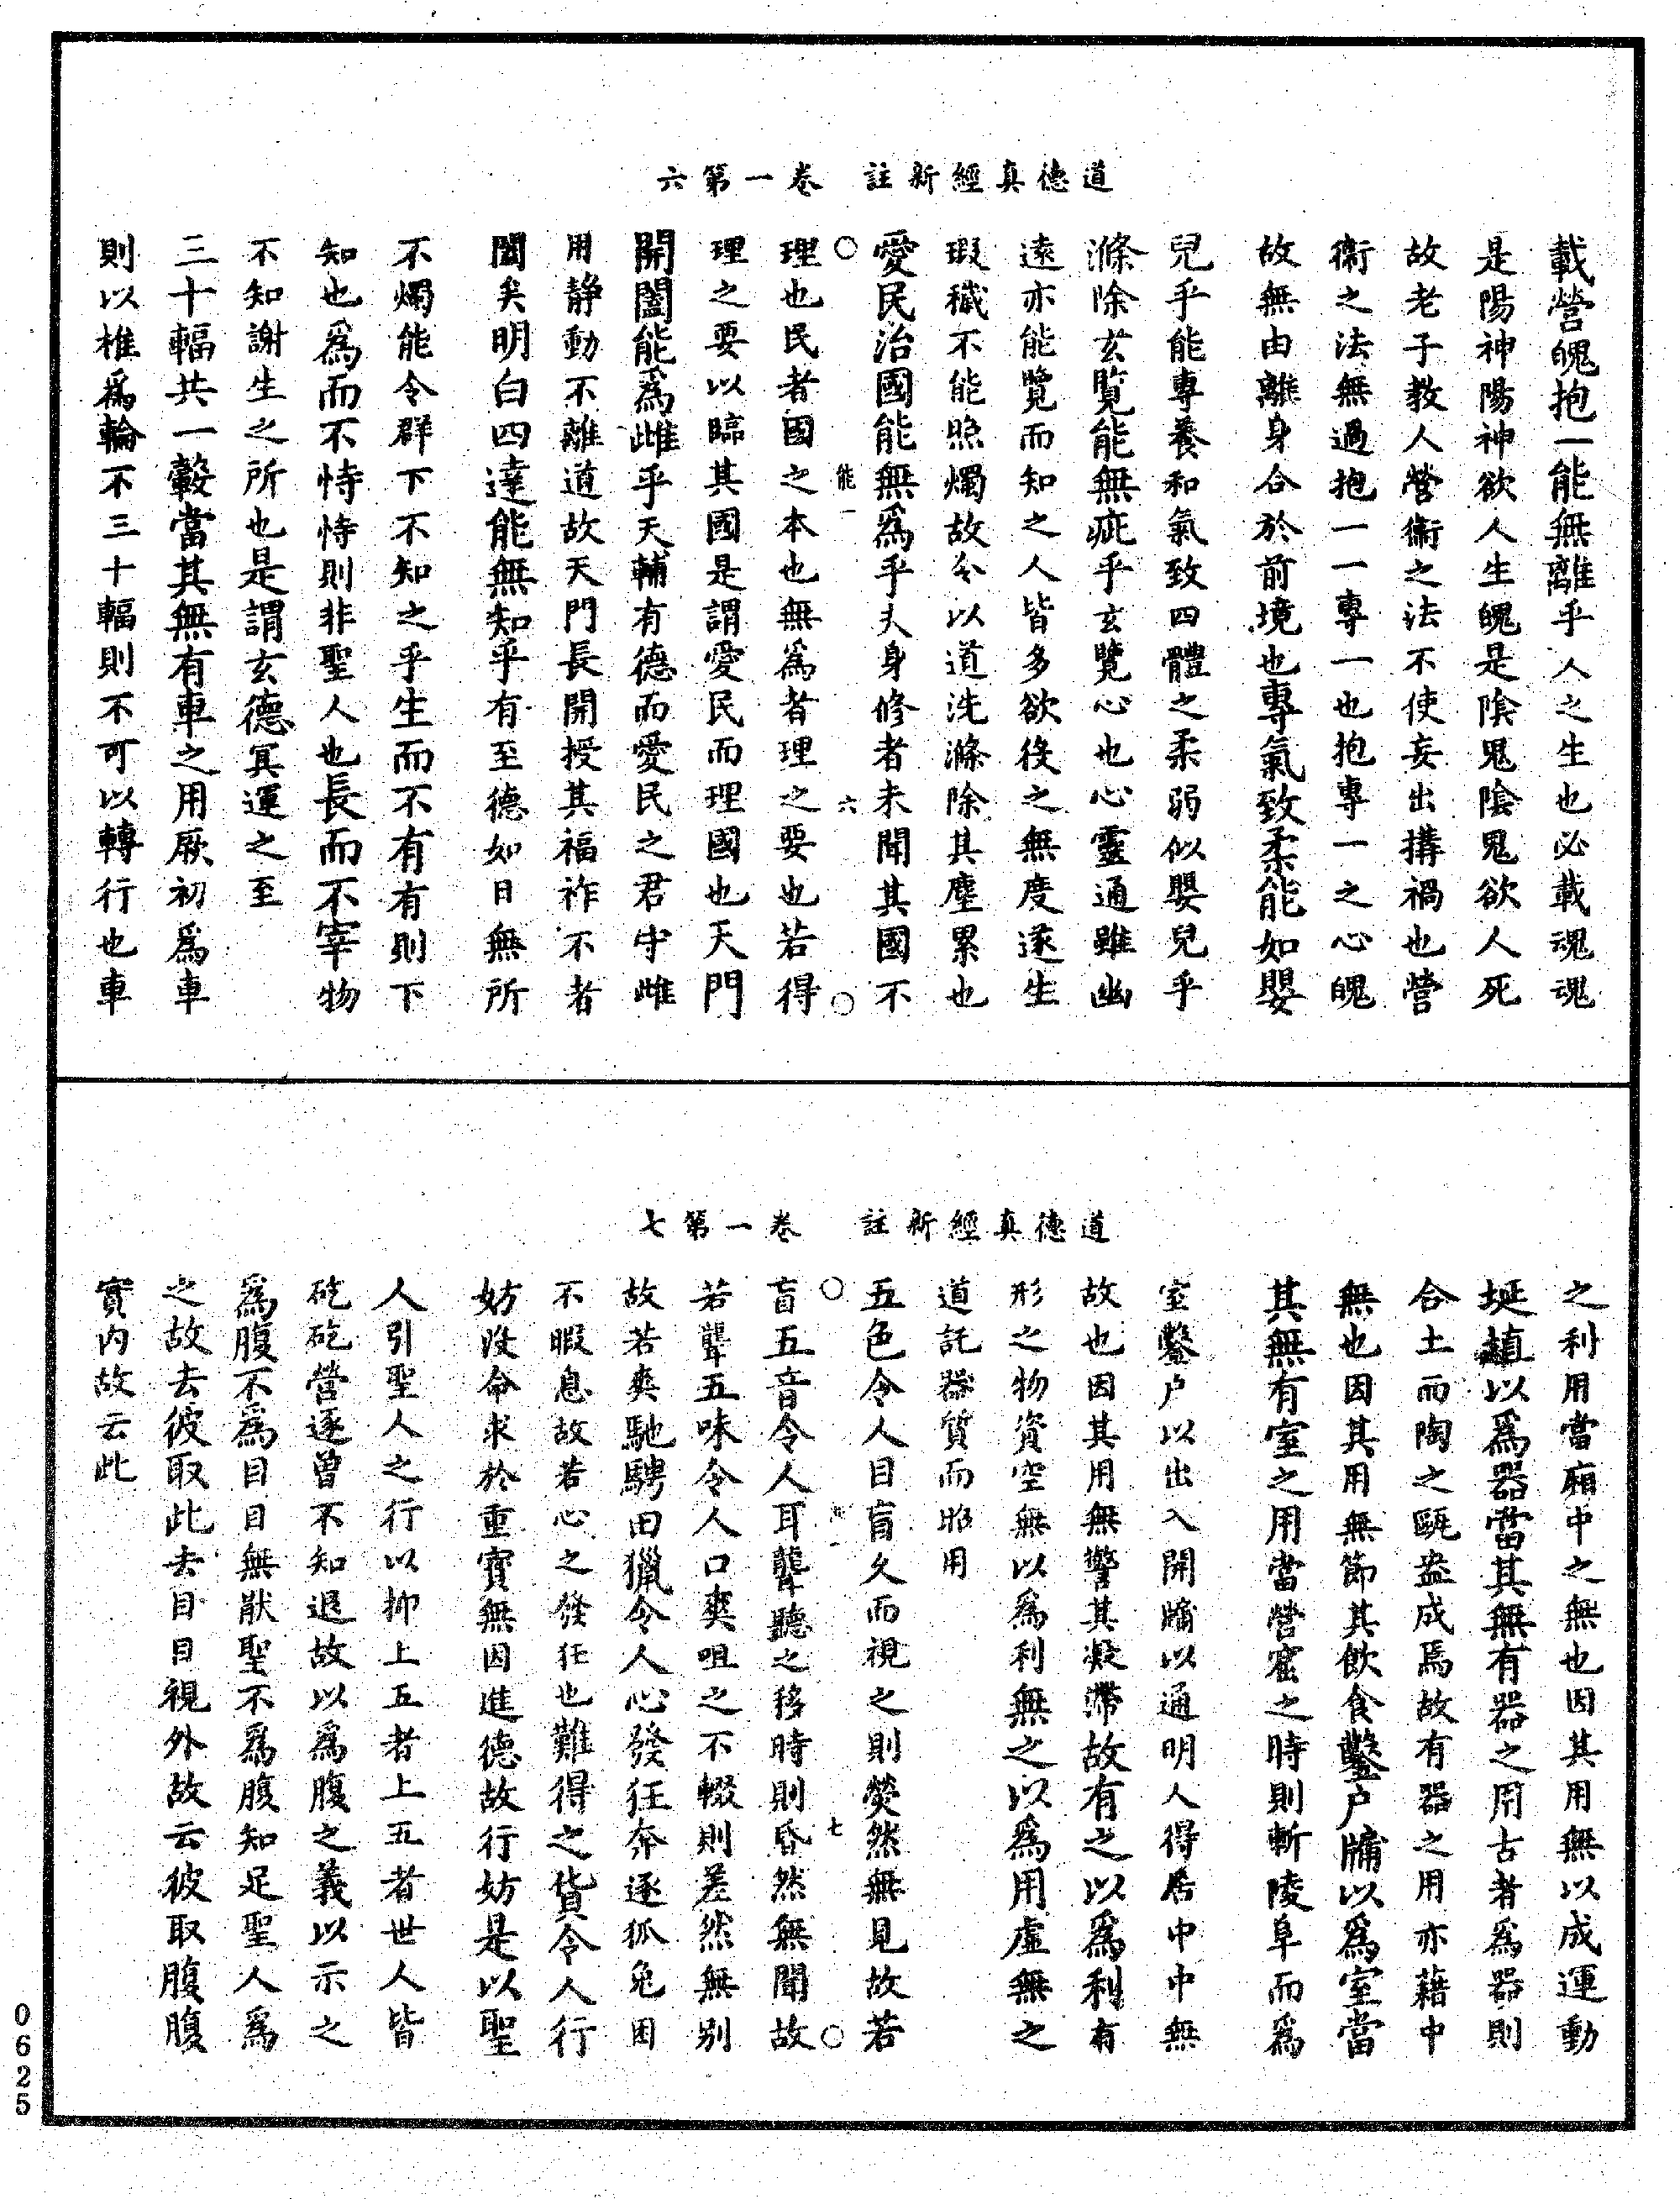 道德真經新註　卷一第六
載營魄抱一能無離乎人之生也必載魂魂
是陽神陽神欲人生魄是陰鬼陰鬼欲人死
故老子教人營衛之法不使妄出搆禍也營
衛之法無過抱一一專一也抱專一之心魄
故無由離身合於前境也專氣致柔能如嬰
兒乎能專養和氣致四體之柔弱似嬰兒乎
滌除玄覽能無疵乎玄覽心也心靈通雖幽
遠亦能覽而知之人皆多欲役之無度遂生
瑕穢不能照燭故令以道洗滌除其塵累也
愛民治國能無為乎夫身修者未聞其國不
〇　能一　六　〇
理也民者國之本也無為者理之要也若得
理之要以臨其國是謂愛民而理國也天門
開闔能為雌乎天輔有德而愛民之君守雌
用静動不離道故天門長開授其福祚不者
闔矣明白四達能無知乎有至德如日無所
不燭能令群下不知之乎生而不有有則下
知也為而不恃恃則非聖人也長而不宰物
不知謝生之所也是謂玄德冥運之至
三十輻共一轂當其無有車之用厥初為車
則以椎為輪不三十輻則不可以轉行也車
道德真經新註　卷一第七
之利用當廂中之無也因其用無以成運動
埏埴以為器當其無有器之用古者為器則
合土而陶之甌盎成焉故有器之用亦藉中
無也因其用無節其飲食鑿户牖以為室當
其無有室之用當營窟之時則斬陵阜而為
室鑿户以出入開牖以通明人得居中中無
故也因其用無警其凝滯故有之以為利有
形之物資空無以為利無之以為用虛無之
道託器質而昭用
五色令人目盲久而視之則熒然無見故若
〇　七　〇
盲五音令人耳聾聽之移時則昏然無聞故
若聾五味令人口爽咀之不輟則差然無別
故若爽馳騁田獵令人心發狂奔逐狐兔困
不暇息故若心之發狂也難得之貨令人行
妨沒命求於重寶無因進德故行妨是以聖
人引聖人之行以抑上五者上五者世人皆
矻矻營逐曾不知退故以為腹之義以示之
為腹不為目目無猒聖不為腹知足聖人為
之故去彼取此去目目視外故云彼取腹腹
實內故云此
0625